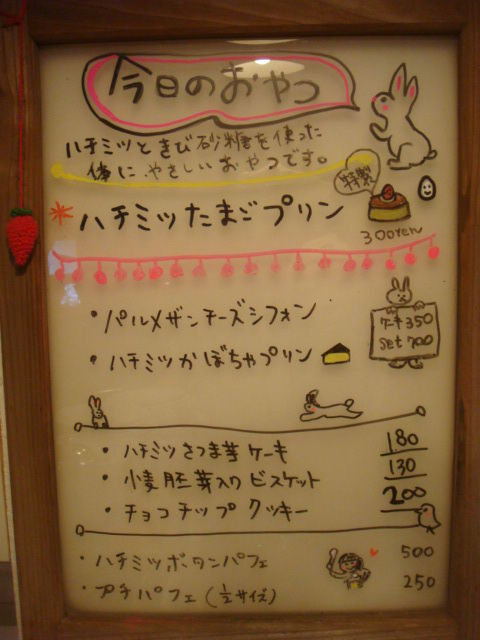 今日のおやつ
ハチミツときび砂糖を使った
体にやさしいおやつです。
特製
ハチミツたまごプリン
300yen
・パルメザンチーズシフォン
・ハチミツかぼちゃプリン
ケーキ350
set 700
・ハチミツさつま芋ケーキ 180
・小麦胚芽入りビスケット 130
・チョコチップクッキー 200
・ハチミツボタンパフェ 500
・プチパフェ(1/2サイズ) 250